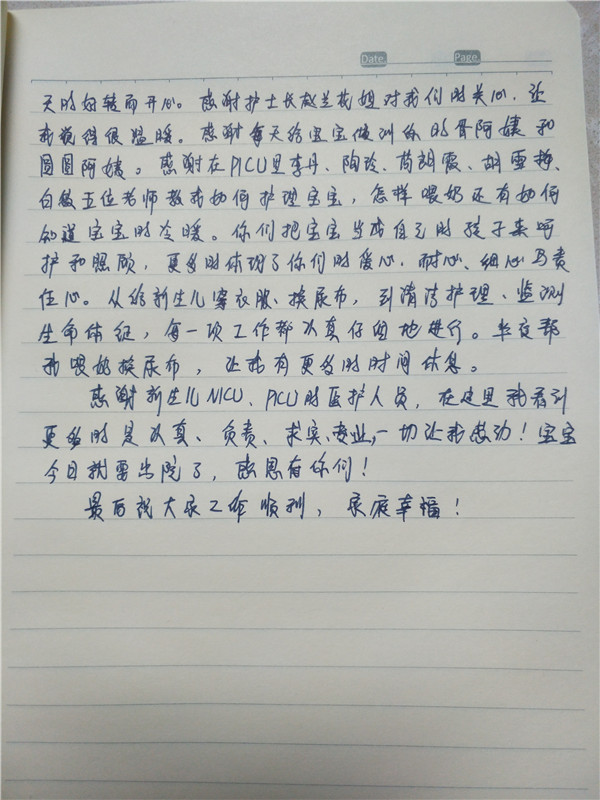 Date
Page
天的好转而开心。感谢护士长赵兰花姐对我们的关心，让
我觉得很温暖。感谢每天给宝宝做训练的骨阿姨和
圆圆阿姨。感谢在PICU里李丹、陶玲、苟朝霞、胡雪梅、
白敏五位老师教我如何护理宝宝，怎样喂奶还有如何
知道宝宝的冷暖。你们把宝宝当成自己的孩子来呵
护和照顾，更多的体现了你们的爱心、耐心、细心与责
任心。从给新生儿穿衣服、换尿布，到清洁护理、监测
生命体征，每一项工作都认真仔细地进行。半夜帮
我喂奶换尿布，让我有更多的时间休息。
感谢新生儿NICU、PICU的医护人员，在这里我看到
更多的是认真、负责、求实、专业，一切让我感动！宝宝
今日就要出院了，感恩有你们！
最后祝大家工作顺利，家庭幸福！